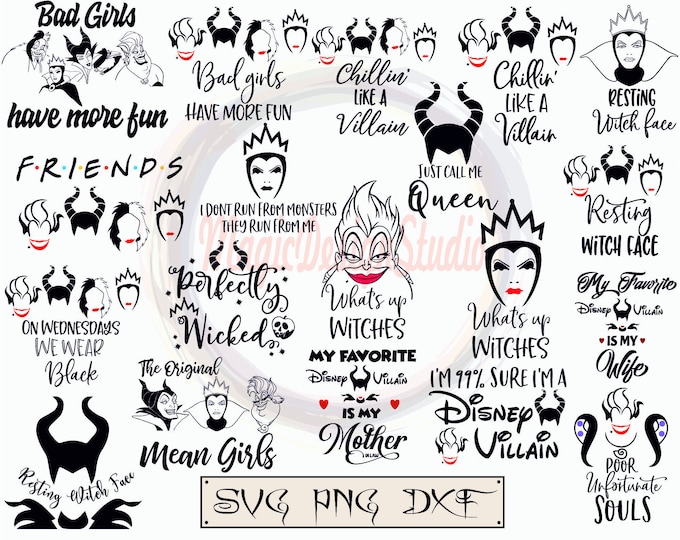 Bad Girls
have more fun
Bad girls
HAVE MORE FUN
Chillin'
LIKE A
Villain
Chillin'
LIKE A
Villain
RESTING
Witch face
F•R•I•E•N•D•S
I DONT RUN FROM MONSTERS
THEY RUN FROM ME
JUST CALL ME
Queen
Resting
WITCH FACE
MagicDesignStudio
ON WEDNESDAYS
WE WEAR
Black
Perfectly
Wicked
What's up
WITCHES
What's up
WITCHES
My Favorite
DISNEY VILLAIN
IS MY
Wife
The Original
Mean Girls
MY FAVORITE
DISNEY VILLAIN
IS MY
Mother
IN LAW
I'M 99% SURE I'M A
DISNEY
VILLAIN
Resting Witch Face
POOR
Unfortunate
SOULS
SVG PNG DXF